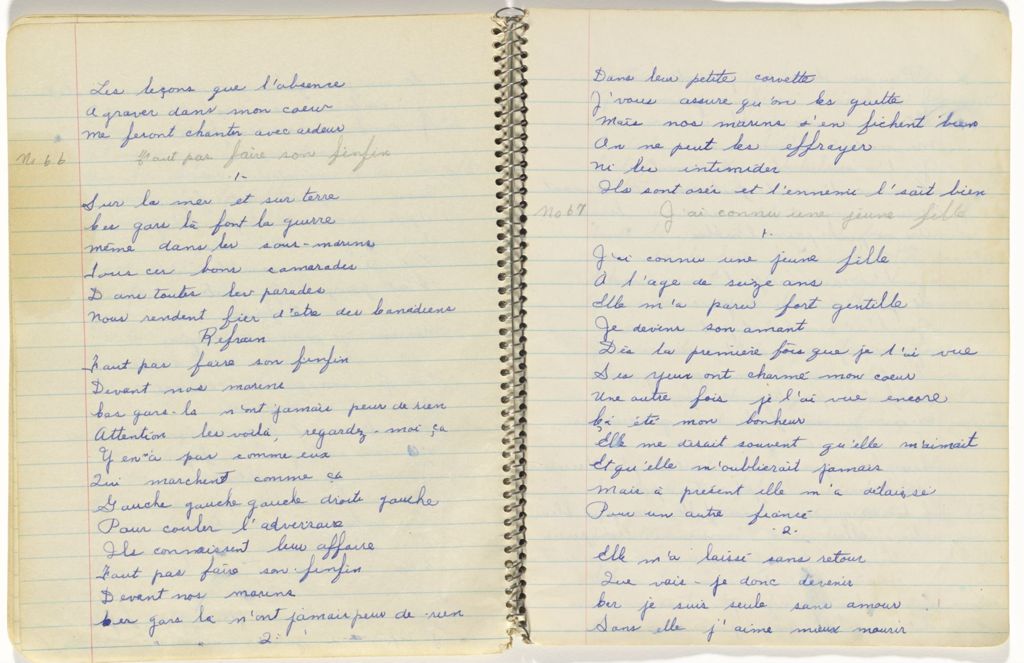 Les leçons que l'absence
A graver dans mon coeur
me feront chanter avec ardeur
No 66 Faut pas faire son finfin
1-
Sur la mer et sur terre
Ces gars là font la guerre
même dans les sous-marins
Tous ces bons camarades
Dans toutes leur parades
Nous rendent fier d'etre des Canadiens
Refrain
Faut pas faire son finfin
Devant nos marins
Ces gars-la n'ont jamais peur de rien
Attention les voilà, regardez-moi ça
Y en-a pas comme eux
Qui marchent comme ça
Gauche gauche gauche droite gauche
Pour couler l'adversaire
Ils connaissent leur affaire
Faut pas faire son-finfin
Devant nos marins
Ces gars la n'ont jamais peur de-rien
2-
Dans leur petite corvette
J'vous assure qu'on les guette
Mais nos marins s'en fichent bien
On ne peut les effrayer
Ni les intimider
Ils sont osés et l'ennemi l'sait bien
No 67 J'ai connu une jeune fille
1.
J'ai connu une jeune fille
A l'age de seize ans
Elle m'a paru fort gentille
Je devins son amant
Dès la première fois que je l'ai vue
Ses yeux ont charmé mon coeur
Une autre fois je l'ai vue encore
Ç'a été mon bonheur
Elle me disait souvent qu'elle m'aimait
Et qu'elle m'oublierait jamais
Mais à présent elle m'a délaissé
Pour un autre fiancé
2.
Elle m'a laissé sans retour
Que vais-je donc devenir
Car je suis seule sans amour
Sans elle j'aime mieux mourir